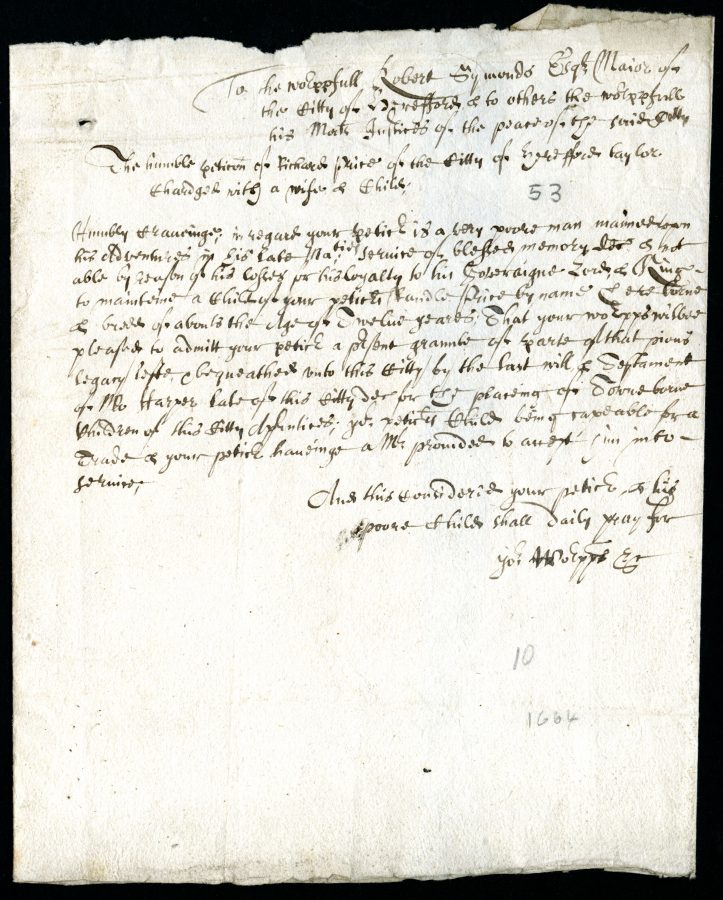 To the worppfull Robert Symonds Esqr Maior of
the Citty of Hereford & to others the worppfull
his Mats Justices of the peace of the said Citty
The humble peticon of Richard Price of the Citty of Hereford taylor
Chardged with a wife & Child;
53
Humbly Craveinge; in regard your peticr is a very poore man maimed on
his Adventures in his late Maties service of blessed memory dec & not
able by reason of his losses for his loyalty to his Soveraigne Lord & Kinge
to mainteine a Child of your peticrs Randle Price by name & here borne
& bredd of abouts the Age of Twelve yeares; That your worpps wilbee
pleased to admitt your peticr a psent grannte of parte of that pious
legacy lefte & bequeathed unto this Citty by the last will & Testament
of Mr Harper late of this Citty dec for the placeing of Towne borne
Children of this Citty Apprntices; yor peticrs Child being capeable for a
Trade & your peticr haveinge a Mr provided to accept him into
service;
And this Considered your peticr & his
poore Child shall daily pray for
yor Worpps &c
10
1664